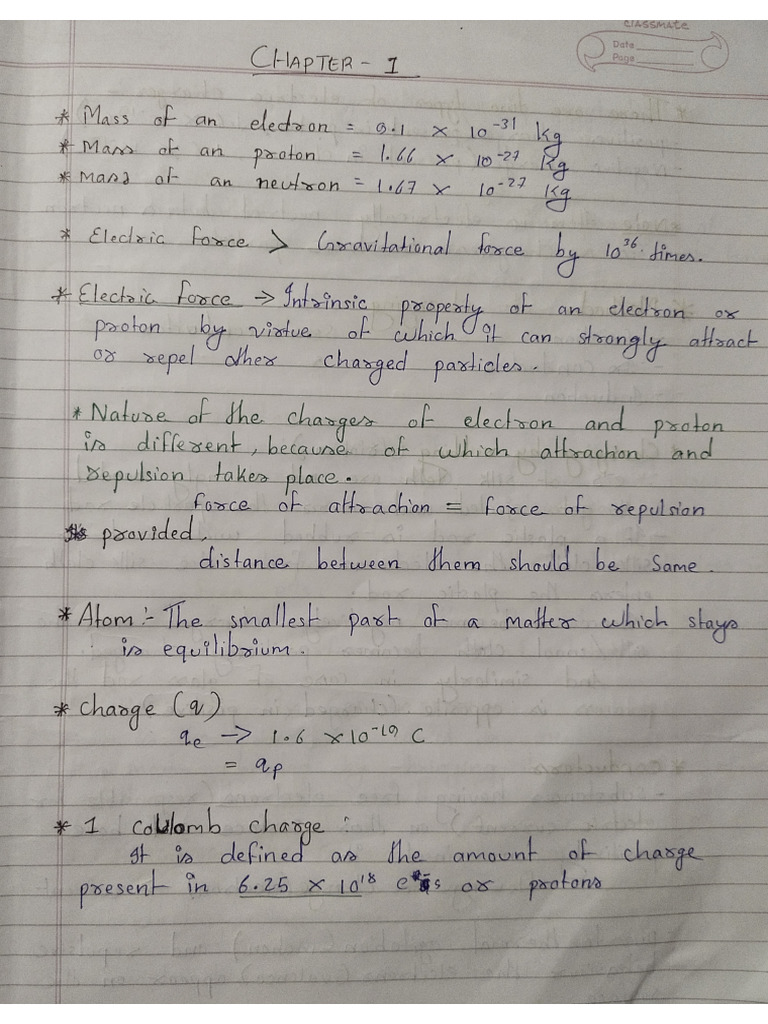 classmate
Date
Page
CHAPTER - 1
* Mass of an electron = 9.1 × 10⁻³¹ kg
* Mass of an proton = 1.66 × 10⁻²⁷ kg
* Mass of an neutron = 1.67 × 10⁻²⁷ kg
* Electric force > Gravitational force by 10³⁶ times.
* Electric force → Intrinsic property of an electron or
proton by virtue of which it can strongly attract
or repel other charged particles.
* Nature of the charges of electron and proton
is different, because of which attraction and
repulsion takes place.
force of attraction = force of repulsion
provided,
distance between them should be same.
* Atom :- The smallest part of a matter which stays
is equilibrium.
* Charge (q)
qe → 1.6 × 10⁻¹⁹ C
= qp
* 1 coulomb charge :
It is defined as the amount of charge
present in 6.25 × 10¹⁸ e⁻s or protons